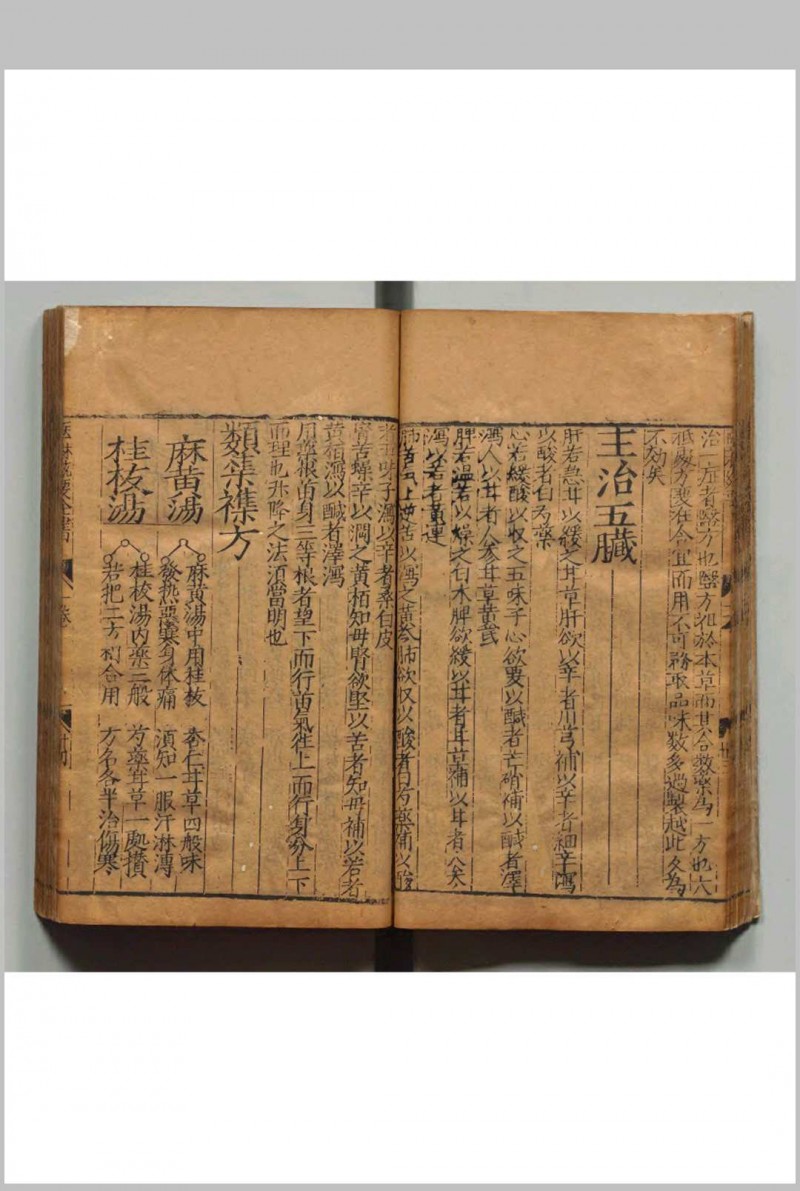 治一症者醫方也醫方祖於本草而其合數藥為一方也六
不効矣
主治五臟
肝若急甘以緩之甘草肝欲以辛者川芎補以辛者細辛瀉
以酸者白芍藥
心若緩酸以收之五味子心欲耎以鹹者芒硝補以鹹者澤
瀉人以甘者人參甘草黃芪
脾若濕苦以燥之白术脾欲緩以甘者甘草補以甘者人参
瀉以苦者黃連
肺苦氣上逆苦以瀉之黃芩肺欲收以酸者白芍藥補以酸
者五味子瀉以辛者桑白皮
腎苦燥辛以潤之黃栢知毋腎欲堅以苦者知毋補以若者
黃栢瀉以鹹者澤瀉
用藥根苗身三等根者望下而行苗氣徃上而行身分上下
而理也升降之法須當明也
類集襍方
麻黃湯
麻黃湯中用桂枝 杏仁甘草四般味
發热惡寒身体痛 須知一服汗淋漓
桂枝湯
桂枝湯内藥三般 芍藥甘草一處攢
若把二方相合用 方名各半治傷寒